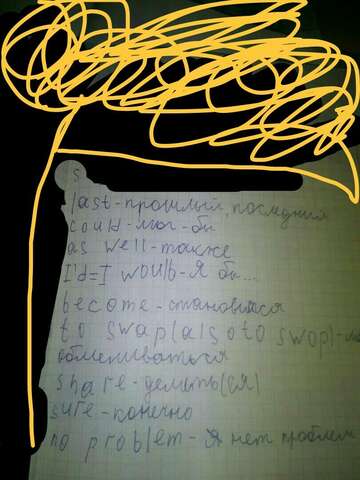 s
last - прошлый, последний
could - мог - бы
as well - также
I'd = I woulb - я бы...
become - становиться
to swap (also to swop) -
обмениваться
share - делить(ся)
sure - конечно
no problem - я нет проблем